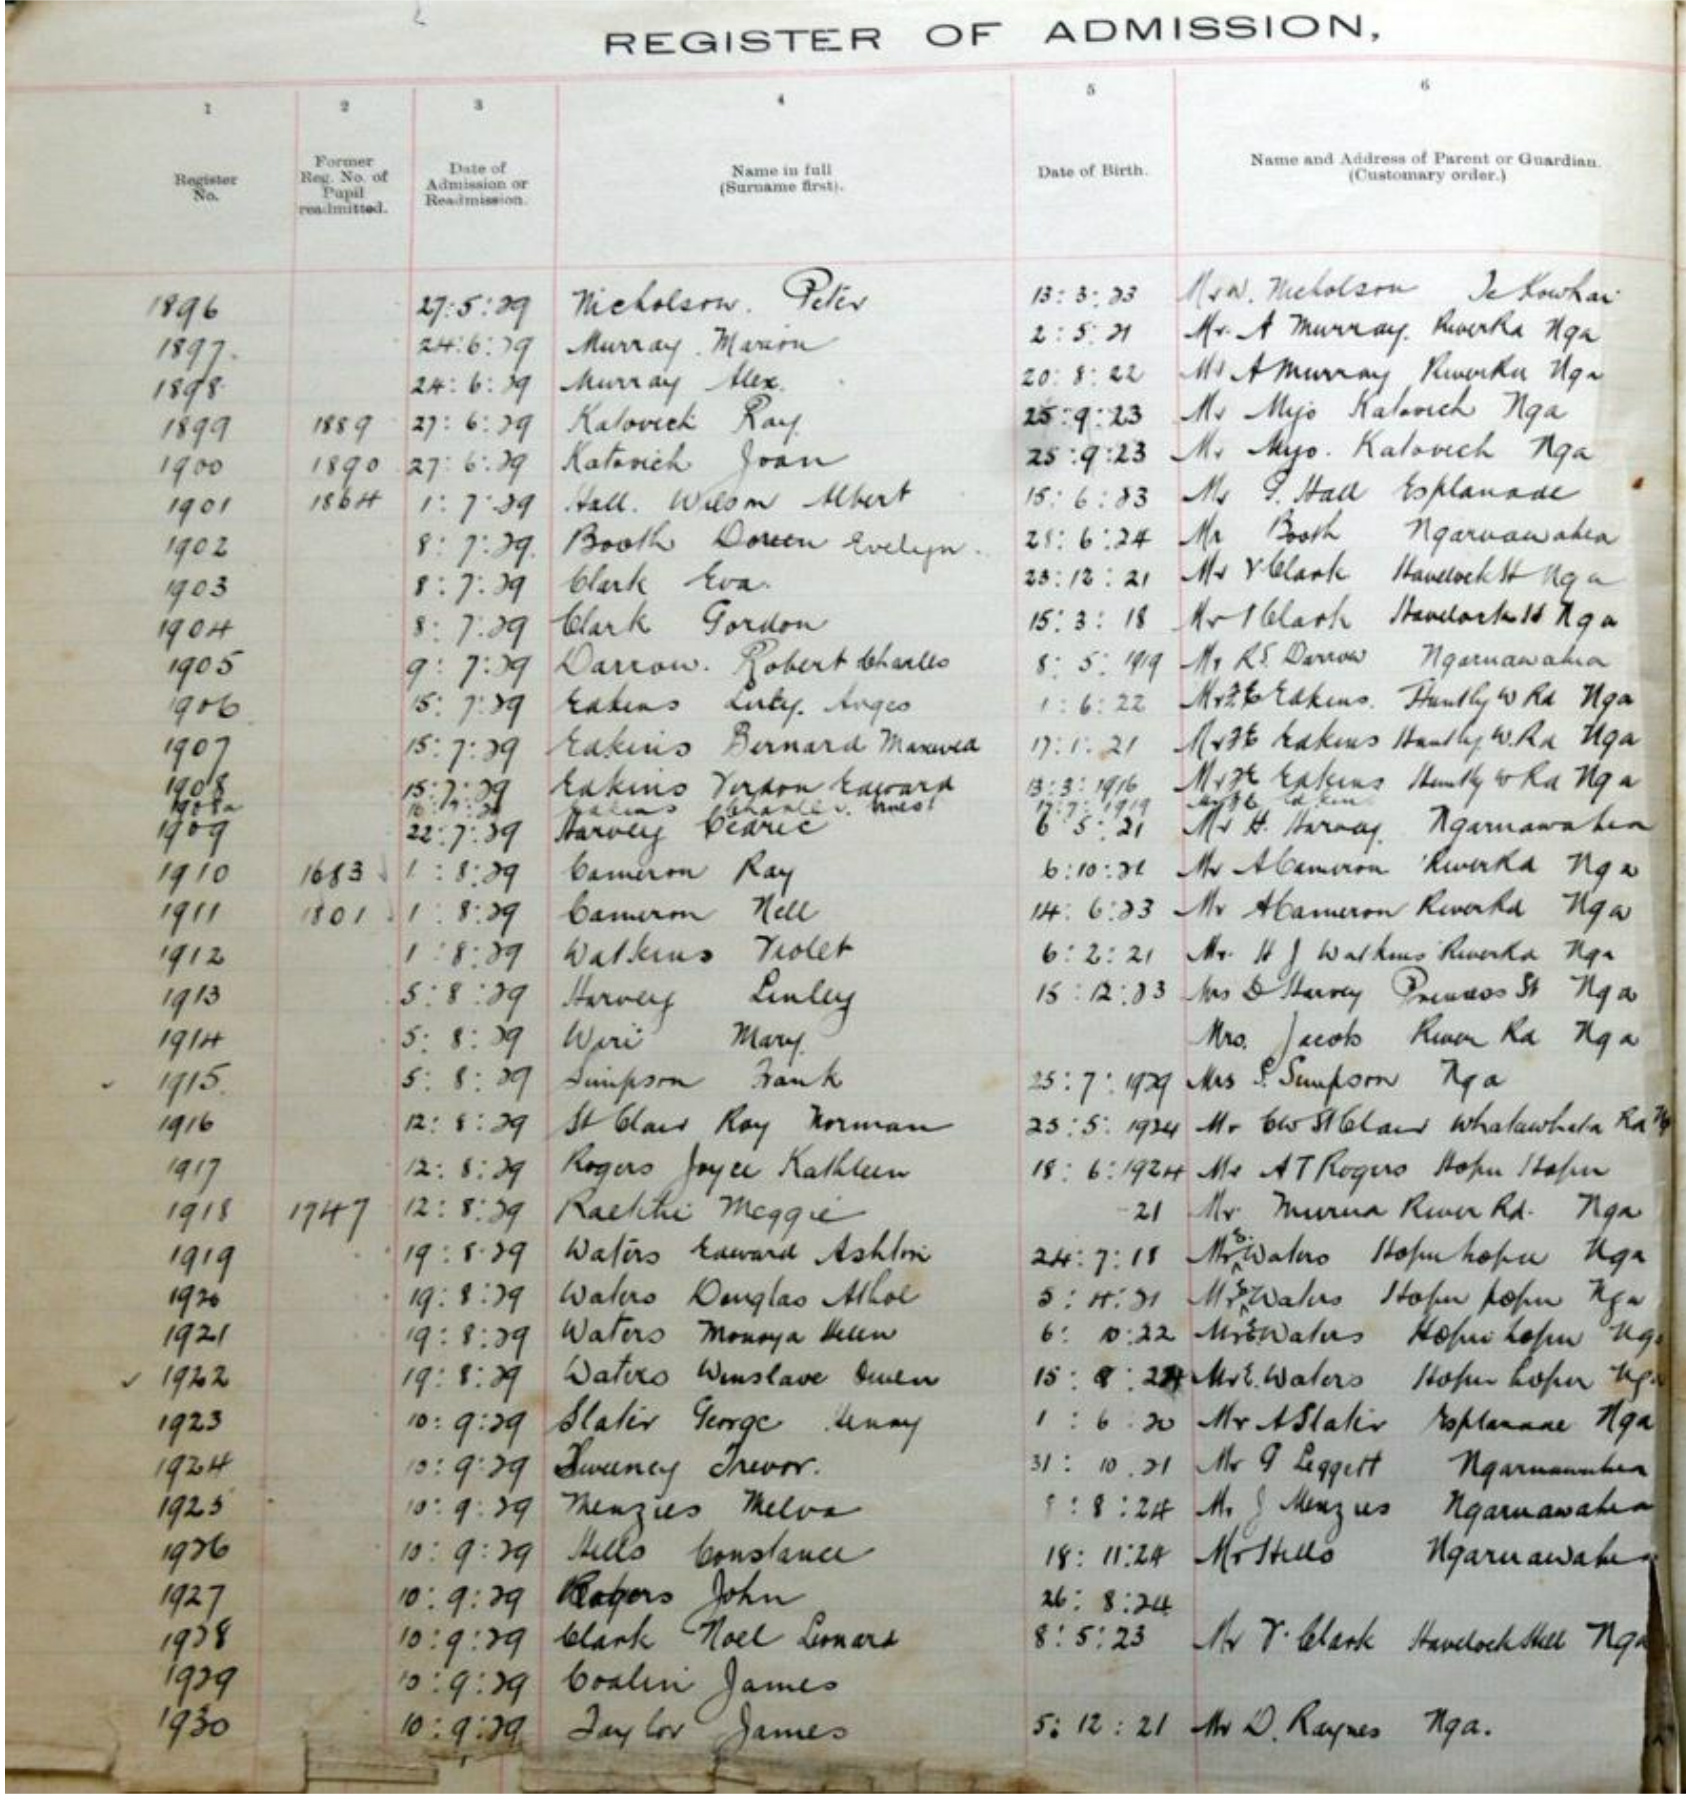 REGISTER OF ADMISSION,
1 2 3 4 5 6
Register No. Former Reg. No. of Pupil readmitted. Date of Admission or Readmission. Name in full (Surname first). Date of Birth. Name and Address of Parent or Guardian. (Customary order.)
1896 27:5:29 Nicholson. Peter 13:3:23 Mr W. Nicholson Te Kowhai
1897. 24:6:29 Murray. Marion 2:5:21 Mr. A Murray. River Rd Nga
1898 24:6:29 Murray Alex. 20:8:22 Mr A Murray River Rd Nga
1899 1889 27:6:29 Katovich Ray 25:9:23 Mr Mijo Katovich Nga
1900 1890 27:6:29 Katovich Joan 25:9:23 Mr Mijo. Katovich Nga
1901 1864 1:7:29 Hall. Wilson Albert 15:6:23 Mr Hall Esplanade
1902 8:7:29. Booth Doreen Evelyn. 28:6:24 Mr Booth Ngaruawahia
1903 8:7:29 Clark Eva. 23:12:21 Mr V Clark Havelock St Nga
1904 8:7:29 Clark Gordon 15:3:18 Mr V Clark Havelock St Nga
1905 9:7:29 Darrow. Robert Charles 8:5:1919 Mr R.S. Darrow Ngaruawahia
1906 15:7:29 Eakins 1:6:22 Mr Eakins. Huntly W Rd Nga
1907 15:7:29 Eakins Bernard 17:1:21 Mr Eakins Huntly W. Rd Nga
1908 15:7:29 Eakins Verdon Edward 13:3:1916 Mr Eakins Huntly W Rd Nga
1908a Eakins Charles 17:7:1919 Eakins
1909 22:7:29 Harvey Cedric 6 5:21 Mr H. Harvey. Ngaruawahia
1910 1683 1:8:29 Cameron Ray 6:10:21 Mr A Cameron River Rd Nga
1911 1801 1:8:29 Cameron Nell 14:6:23 Mr A Cameron River Rd Nga
1912 1:8:29 Watkins Violet 6:2:21 Mr. H J Watkins River Rd Nga
1913 5:8:29 Harvey Linley 15:12:23 Mrs D Harvey Princess St Nga
1914 5:8:29 Wiri Mary. Mrs. Jacobs River Rd Nga
1915. 5:8:29 Simpson Frank 25:7:1929 Mrs S. Simpson Nga
1916 12:8:29 St Clair Roy Norman 23:5:1924 Mr CW St Clair Whatawhata Rd
1917 12:8:29 Rogers Joyce Kathleen 18:6:1924 Mr A T Rogers Hopu Hopu
1918 1747 12:8:29 Meggie 21 Mr. Murua River Rd. Nga
1919 19:8:29 Waters Edward Ashton 24:7:18 Mr E. Waters Hopu hopu Nga
1920 19:8:29 Waters Douglas Athol 5:4:21 Mr E. Waters Hopu hopu Nga
1921 19:8:29 Waters Helen 6:10:22 Mr E Waters Hopu hopu Nga
1922 19:8:29 Waters Winslave Owen 15:8:24 Mr E. Waters Hopu hopu Nga
1923 10:9:29 Slater George Henry 1:6:20 Mr A Slater Esplanade Nga
1924 10:9:29 Sweeney Trevor. 31:10.21 Mr G Leggett Ngaruawahia
1925 10:9:29 Menzies Melva 8:24 Mr J Menzies Ngaruawahia
1926 10:9:29 Hills Constance 18:11:24 Mr Hills Ngaruawahia
1927 10:9:29 Rogers John 26:8:24
1928 10:9:29 Clark Noel Leonard 8:5:23 Mr V. Clark Havelock Hill Nga
1929 10:9:29 James
1930 10:9:29 Taylor James 5:12:21 Mr D. Raynes Nga.